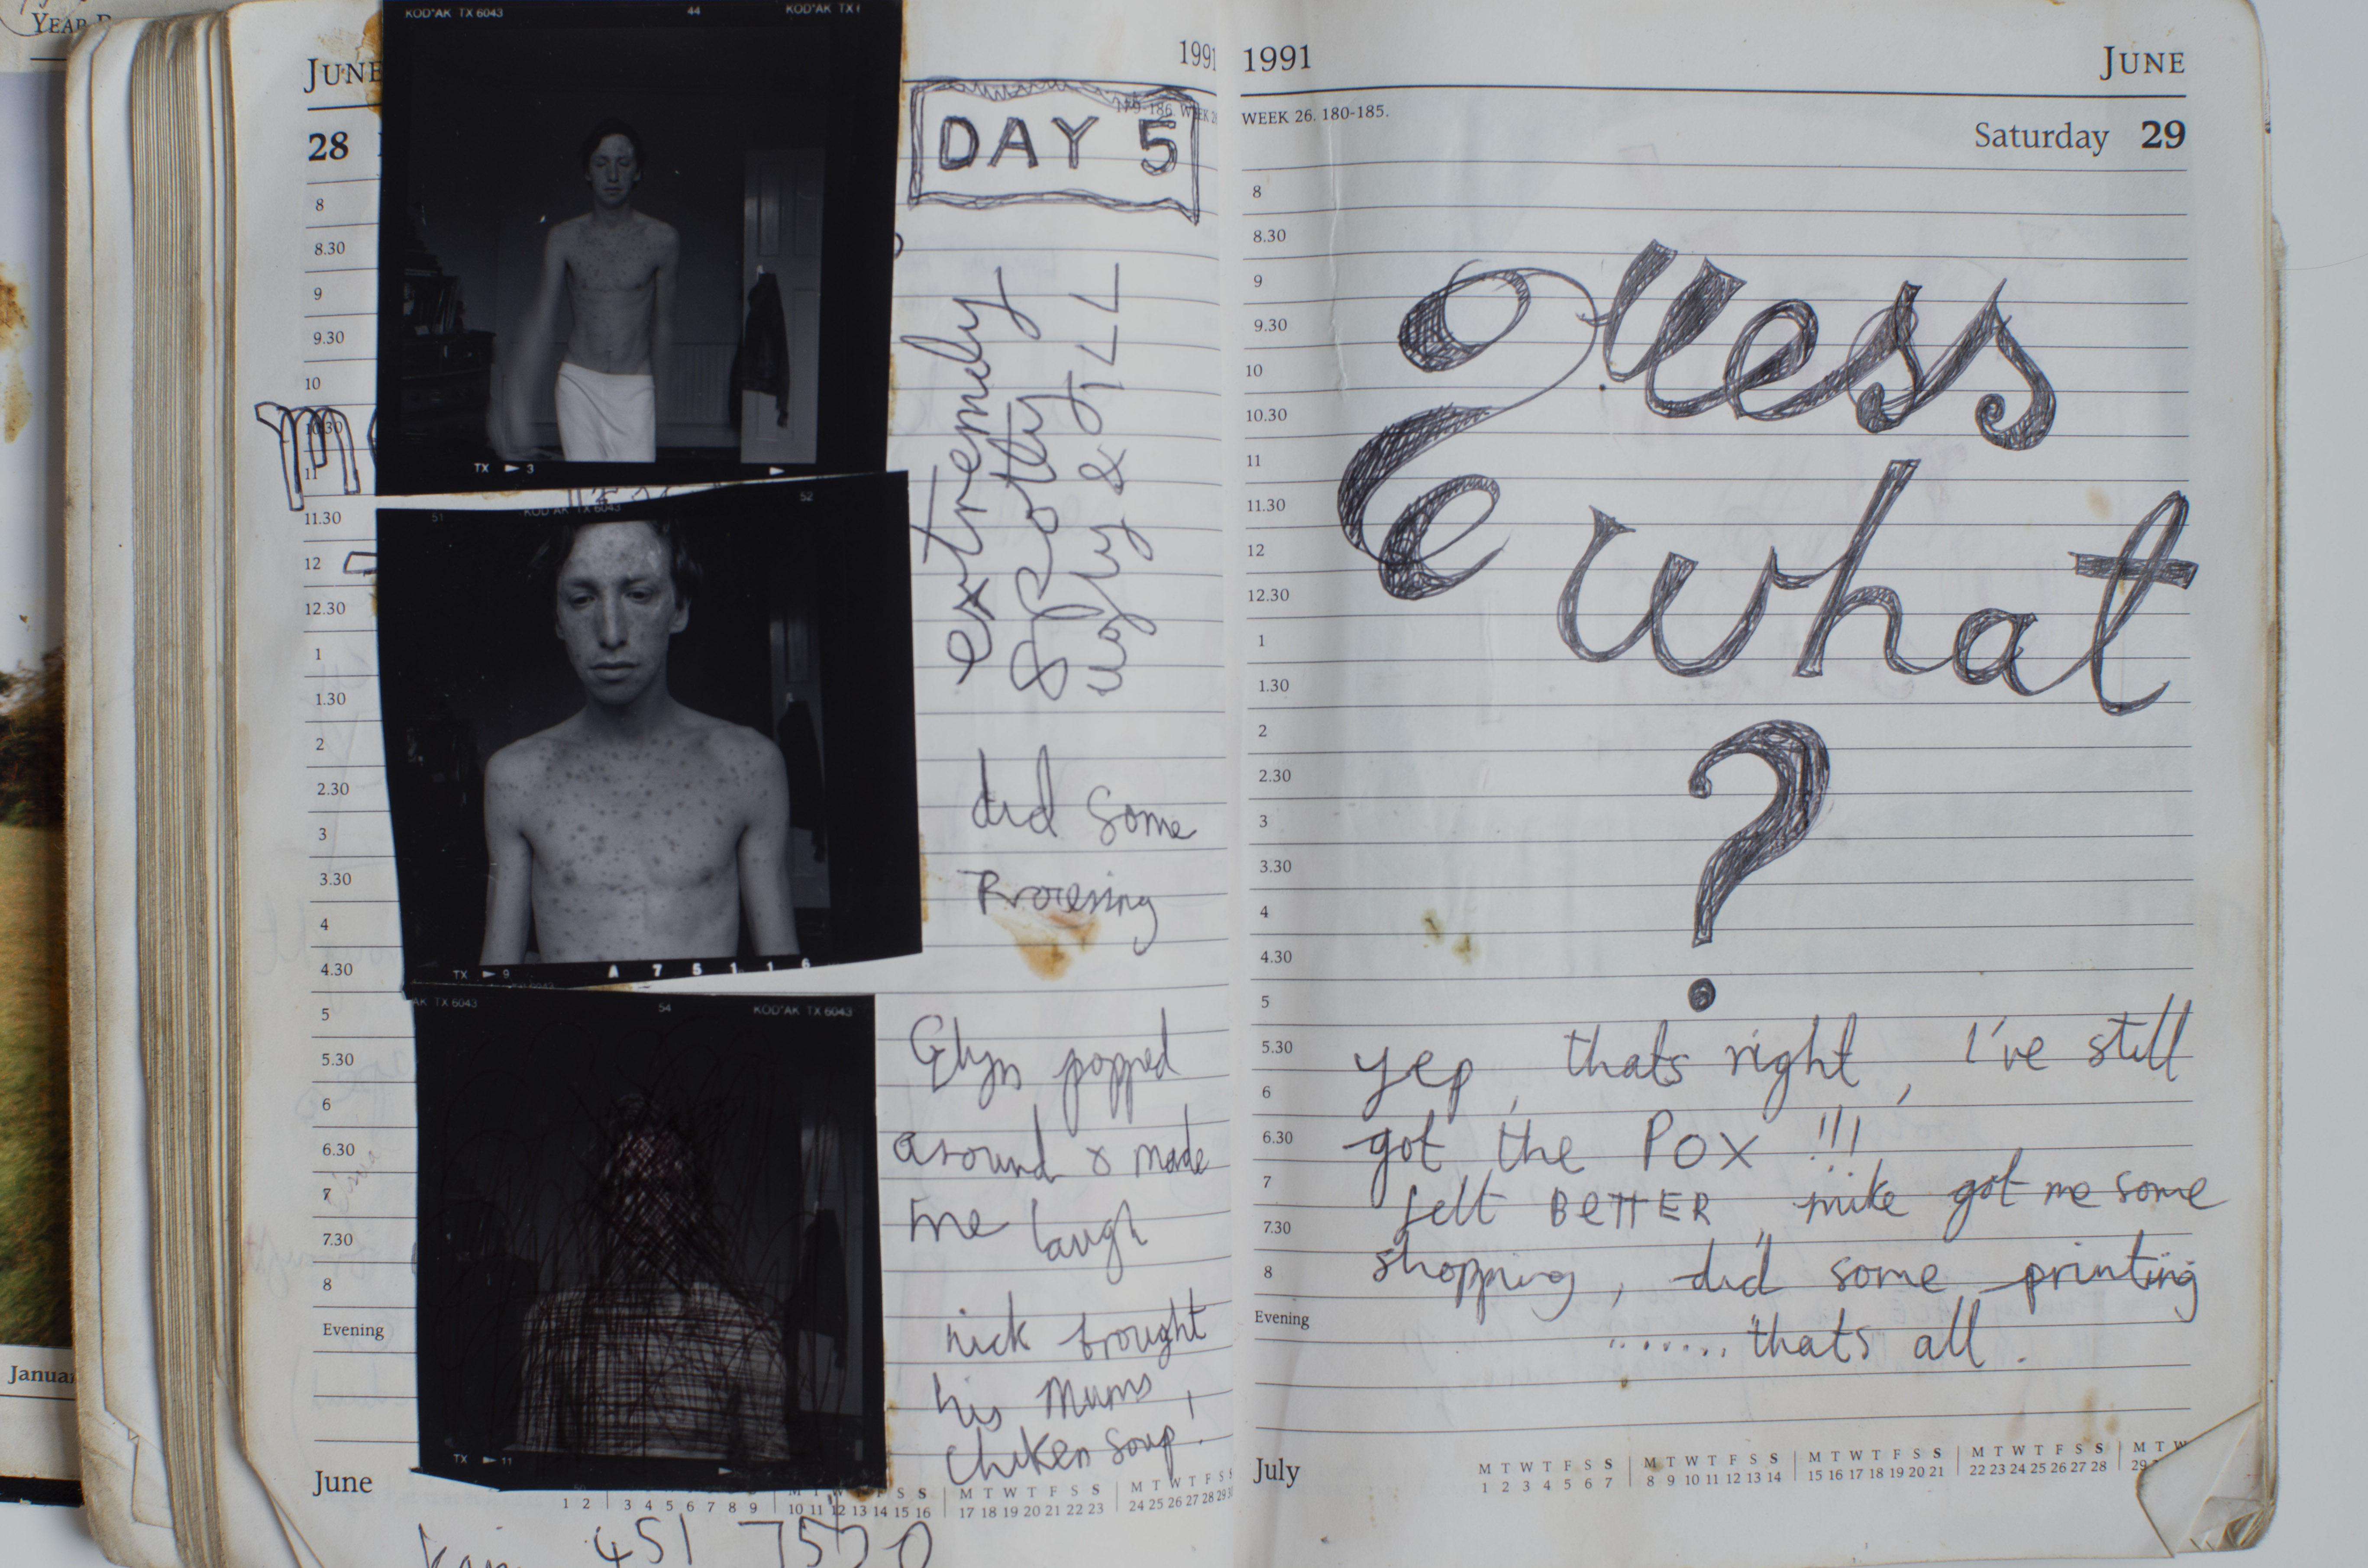 YEAR
Janua
JUNE
1991
28
179-186. WEEK 26
DAY 5
KODAK TX 6043
44
KODAK TX
TX ▶ 3
extremely
spotty
ugly & ILL
51
KODAK TX 6043
52
TX ▶ 9
A 7 5 1 1 6
did some
Processing
AK TX 6043
54
KODAK TX 6043
TX ▶ 11
Glyn popped
around & made
me laugh
nick brought
his Mums
chiken soup!
8
8.30
9
9.30
10
10.30
11
11.30
12
12.30
1
1.30
2
2.30
3
3.30
4
4.30
5
5.30
6
6.30
7
7.30
8
Evening
June
M T W T F S S
1 2
3 4 5 6 7 8 9
10 11 12 13 14 15 16
M T W T F S S
17 18 19 20 21 22 23
M T W T F S S
24 25 26 27 28 29 30
451
1991
JUNE
WEEK 26. 180-185.
Saturday 29
8
8.30
9
9.30
10
10.30
11
11.30
12
12.30
1
1.30
2
2.30
3
3.30
4
4.30
5
5.30
6
6.30
7
7.30
8
Evening
Guess
what
?
yep, thats right, I've still
got the POX !!!
felt BETTER, mike got me some
shopping, did some printing
....... thats all.
July
M T W T F S S
1 2 3 4 5 6 7
M T W T F S S
8 9 10 11 12 13 14
M T W T F S S
15 16 17 18 19 20 21
M T W T F S S
22 23 24 25 26 27 28
M T W
29